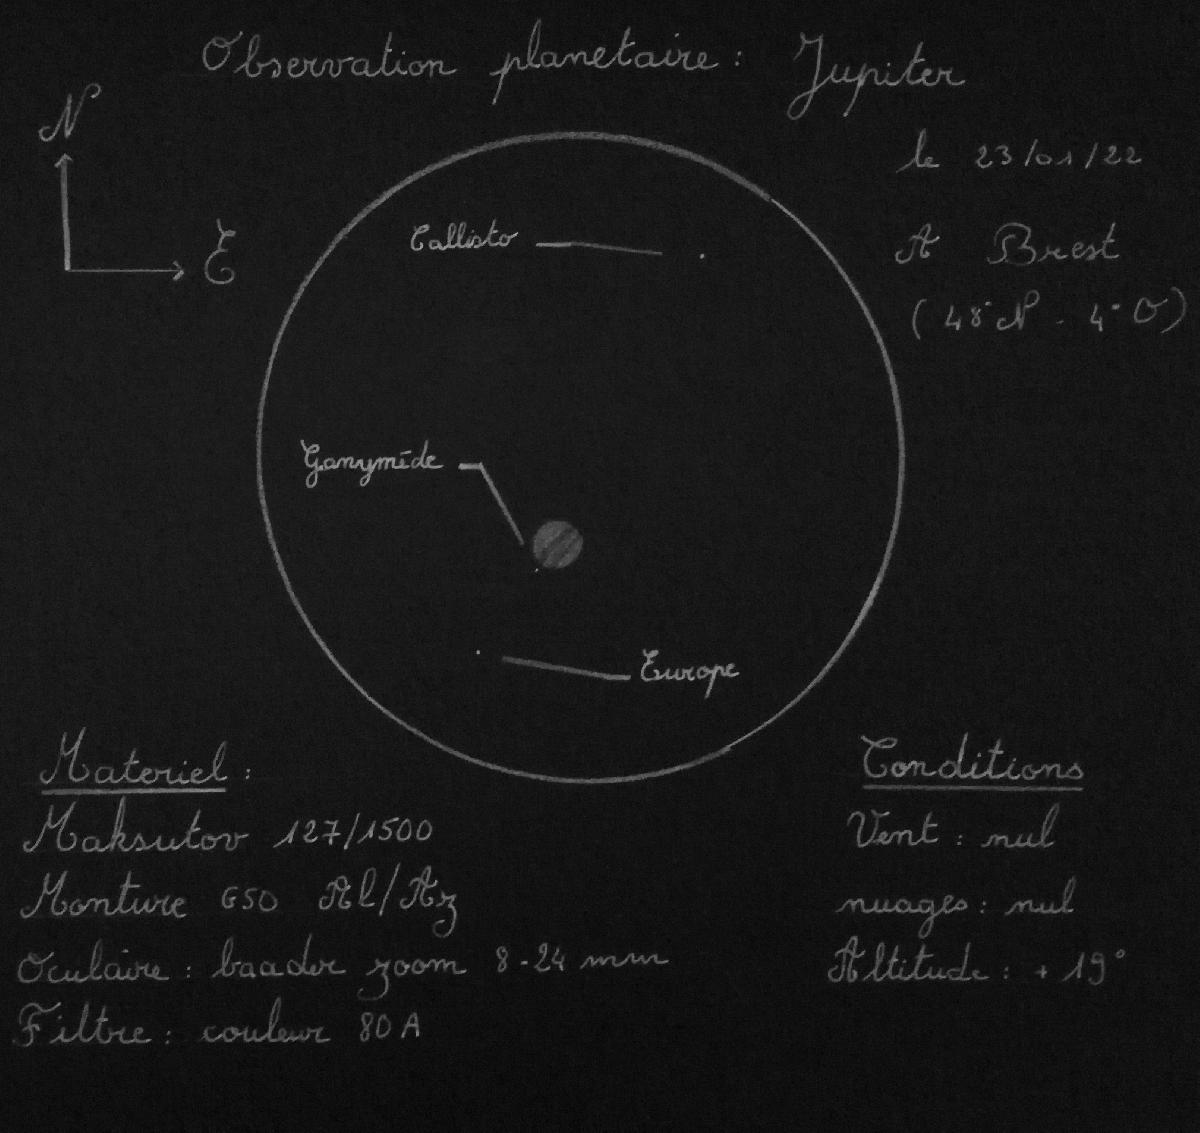 Observation planetaire : Jupiter
N
E
le 23/01/22
A Brest
(48°N - 4°O)
Callisto
Ganymède
Europe
Materiel :
Maksutov 127/1500
Monture GSO Al/Az
Oculaire : baader zoom 8-24 mm
Filtre : couleur 80A
Conditions
Vent : nul
nuages : nul
Altitude : +19°